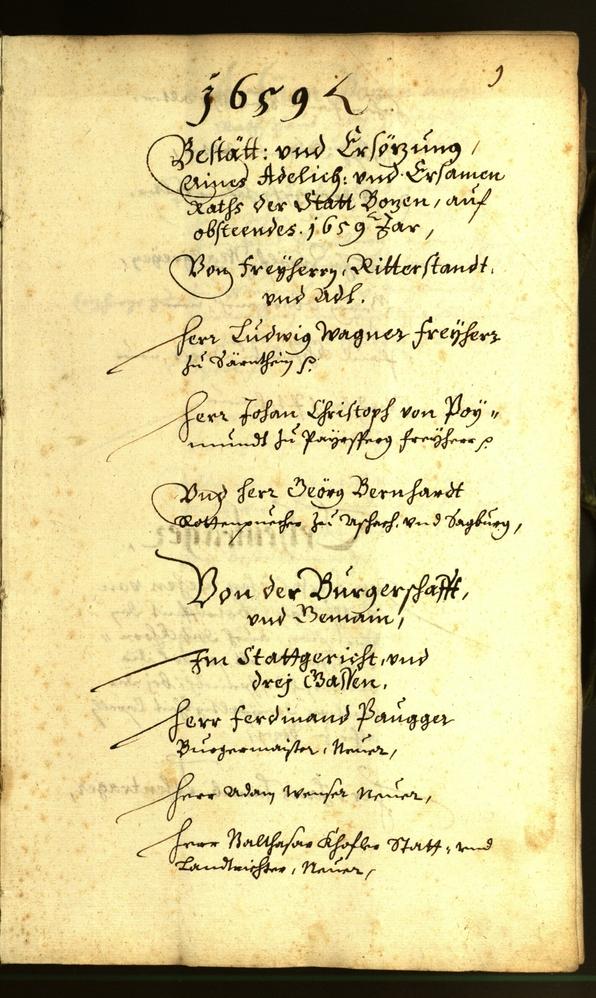 1
1659
Bestätt: und Ersözung,
Aines Adelich: und Ersamen
Raths der Statt Bozen, auf
obsteendes 1659 Jar,
Von Freyherrn, Ritterstandt,
und Adl.
Herr Ludwig Wagner Freyherr
zu Särnthein p:
Herr Johan Christoph von Poÿ"
mundt zu Payrsperg Freyherr p
Und Herr Geörg Bernhardt
Rottenpuecher zu Aschach, und Sagburg,
Von der Burgerschafft,
und Gemain,
Im Stattgericht, und
drej Gassen.
Herr Ferdinand Paugger
Burgermaister, Neuer,
Herr Adam Wenser Neuer,
Herr Balthasar Khofler Statt, und
Landrichter, Neuer,